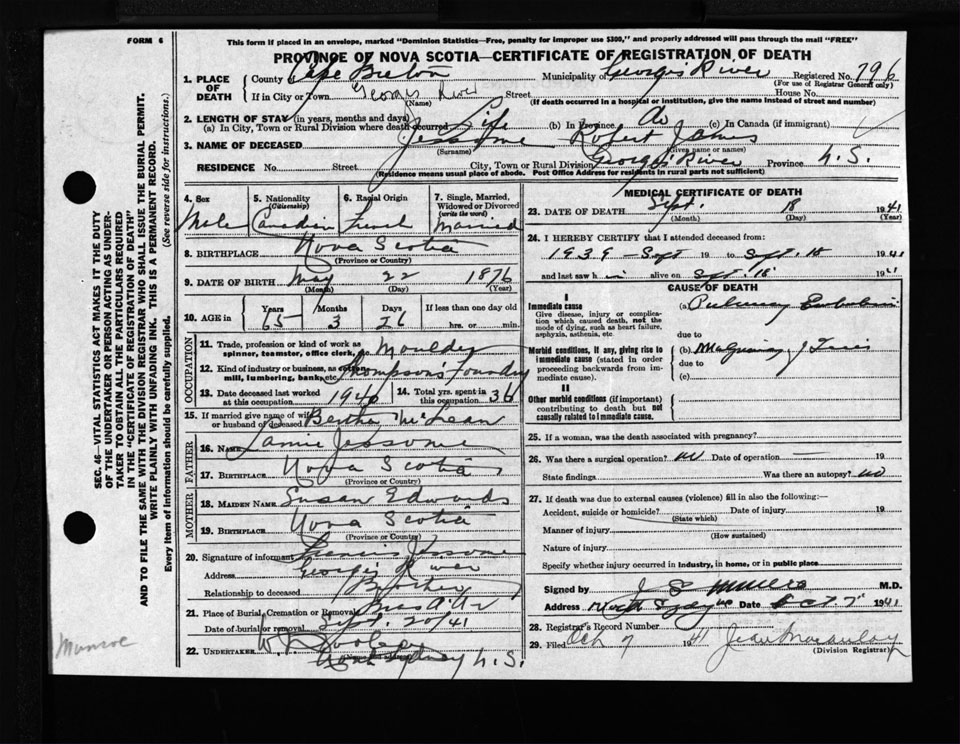 FORM 6
This form if placed in an envelope, marked "Dominion Statistics—Free, penalty for improper use $300," and properly addressed will pass through the mail "FREE"
PROVINCE OF NOVA SCOTIA—CERTIFICATE OF REGISTRATION OF DEATH
1. PLACE OF DEATH
County Cape Breton Municipality of Georges River Registered No. 796
(For use of Registrar General only)
If in City or Town Georges River Street House No.
(Name) (If death occurred in a hospital or institution, give the name instead of street and number)
2. LENGTH OF STAY (in years, months and days)
(a) In City, Town or Rural Division where death occurred Life (b) In Province do (c) In Canada (if immigrant)
3. NAME OF DECEASED Jessome Robert James
(Surname) (Given name or names)
RESIDENCE No. Street City, Town or Rural Division Georges River Province N.S.
(Residence means usual place of abode. Post Office Address for residents in rural parts not sufficient)
4. Sex Male
5. Nationality (Citizenship) Canadian
6. Racial Origin French
7. Single, Married, Widowed or Divorced (write the word) Married
8. BIRTHPLACE Nova Scotia
(Province or Country)
9. DATE OF BIRTH May 22 1876
(Month) (Day) (Year)
10. AGE in Years 65 Months 3 Days 26 If less than one day old hrs. or min.
OCCUPATION
11. Trade, profession or kind of work as spinner, teamster, office clerk, etc. Moulder
12. Kind of industry or business, as cotton mill, lumbering, bank, etc. Thompsons Foundry
13. Date deceased last worked at this occupation 1940
14. Total yrs. spent in this occupation 36
15. If married give name of wife or husband of deceased Bertha McLean
FATHER
16. NAME Jessome
17. BIRTHPLACE Nova Scotia
MOTHER
18. MAIDEN NAME Susan Edwards
19. BIRTHPLACE Nova Scotia
(Province or Country)
20. Signature of informant Francis Jessome
Address Georges River
Relationship to deceased Brother
21. Place of Burial, Cremation or Removal
Date of burial or removal Sept. 20/41
22. UNDERTAKER
North Sydney N.S.
MEDICAL CERTIFICATE OF DEATH
23. DATE OF DEATH Sept. 18 1941
(Month) (Day) (Year)
24. I HEREBY CERTIFY that I attended deceased from:
1939 - Sept 19 to Sept. 18 1941
and last saw him alive on Sept. 18 1941
CAUSE OF DEATH
I
Immediate cause
Give disease, injury or complication which caused death, not the mode of dying, such as heart failure, asphyxia, asthenia, etc.
(a) Pulmonary Embolism
due to
Morbid conditions, if any, giving rise to immediate cause (stated in order proceeding backwards from immediate cause).
(b) Malignancy
due to
(c)
II
Other morbid conditions (if important) contributing to death but not causally related to immediate cause.
25. If a woman, was the death associated with pregnancy?
26. Was there a surgical operation? no Date of operation — 19
State findings Was there an autopsy? no
27. If death was due to external causes (violence) fill in also the following:—
Accident, suicide or homicide? Date of injury 19
(State which)
Manner of injury
(How sustained)
Nature of injury
Specify whether injury occurred in industry, in home, or in public place
Signed by M.D.
Address North Sydney NS Date Oct. 7 1941
28. Registrar's Record Number
29. Filed Oct 7 1941 Jean Macaulay
(Division Registrar)
SEC. 46—VITAL STATISTICS ACT MAKES IT THE DUTY
OF THE UNDERTAKER OR PERSON ACTING AS UNDERTAKER
TO OBTAIN ALL THE PARTICULARS REQUIRED
IN THE "CERTIFICATE OF REGISTRATION OF DEATH"
AND TO FILE THE SAME WITH THE DIVISION REGISTRAR WHO SHALL ISSUE THE BURIAL PERMIT.
WRITE PLAINLY WITH UNFADING INK. THIS IS A PERMANENT RECORD.
Every item of information should be carefully supplied. (See reverse side for instructions.)
Munroe